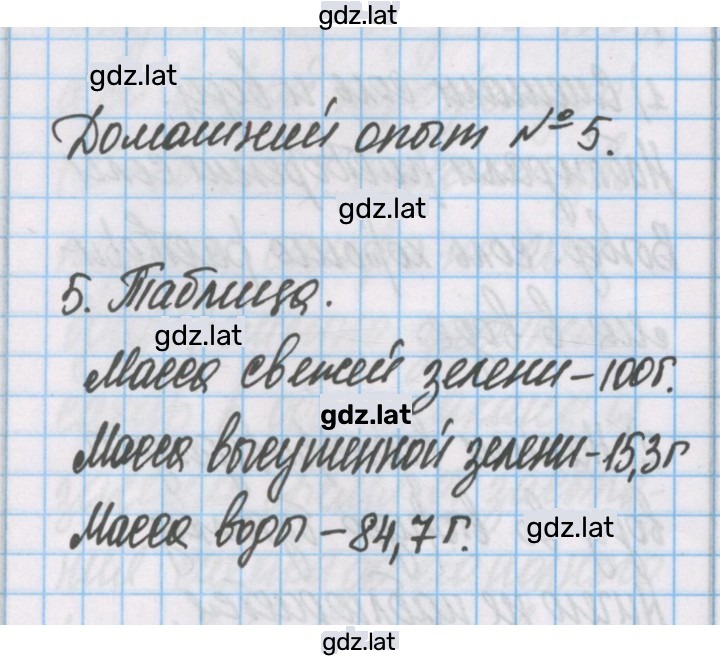 gdz.lat
gdz.lat
Домашний опыт № 5.
gdz.lat
5. Таблица.
gdz.lat
Масса свежей зелени - 100г.
gdz.lat
Масса высушенной зелени - 15,3г
Масса воды - 84,7г.
gdz.lat
gdz.lat